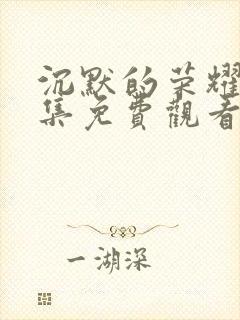 沉默的荣耀
集免費觀看
一湖深